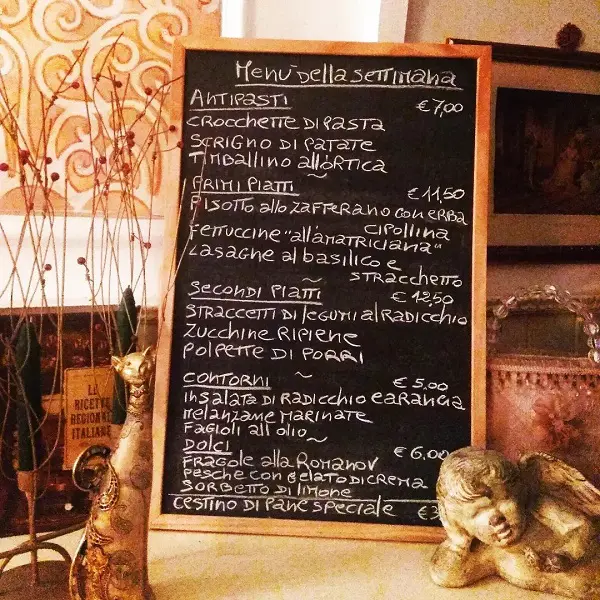 Menù della settimana
Antipasti € 7,00
Crocchette di pasta
Scrigno di patate
Timballino all'ortica
Primi piatti € 11,50
Risotto allo zafferano con erba
cipollina
Fettuccine "all'amatriciana"
Lasagne al basilico e
stracchetto
Secondi piatti € 12,50
Straccetti di legumi al radicchio
Zucchine ripiene
Polpette di porri
Contorni € 5,00
Insalata di radicchio e arancia
Melanzane marinate
Fagioli all'olio
Dolci € 6,00
Fragole alla Romanov
Pesche con gelato di crema
Sorbetto di limone
Cestino di pane speciale €
LE
RICETTE
REGIONALI
ITALIANE